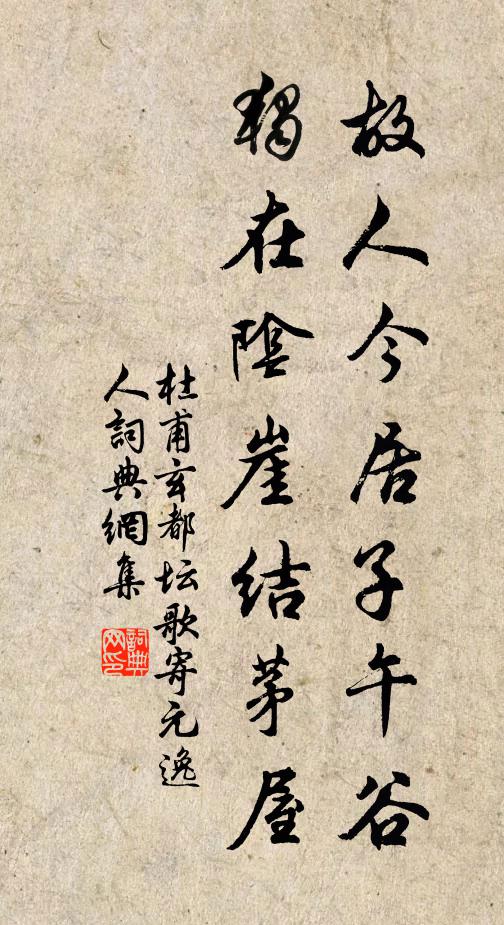 故人今居子午谷
獨在陰崖結茅屋
杜甫玄都坛歌寄元逸
人詞典網集
詞典网印